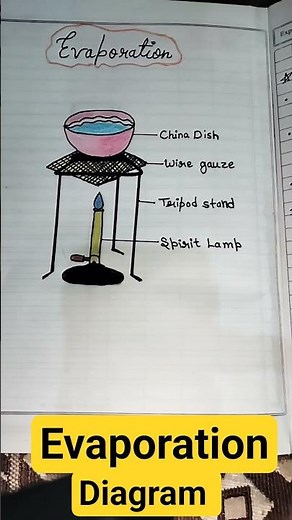 Evaporation
Exp
China Dish
Wire gauze
Tripod stand
Spirit Lamp
Evaporation
Diagram